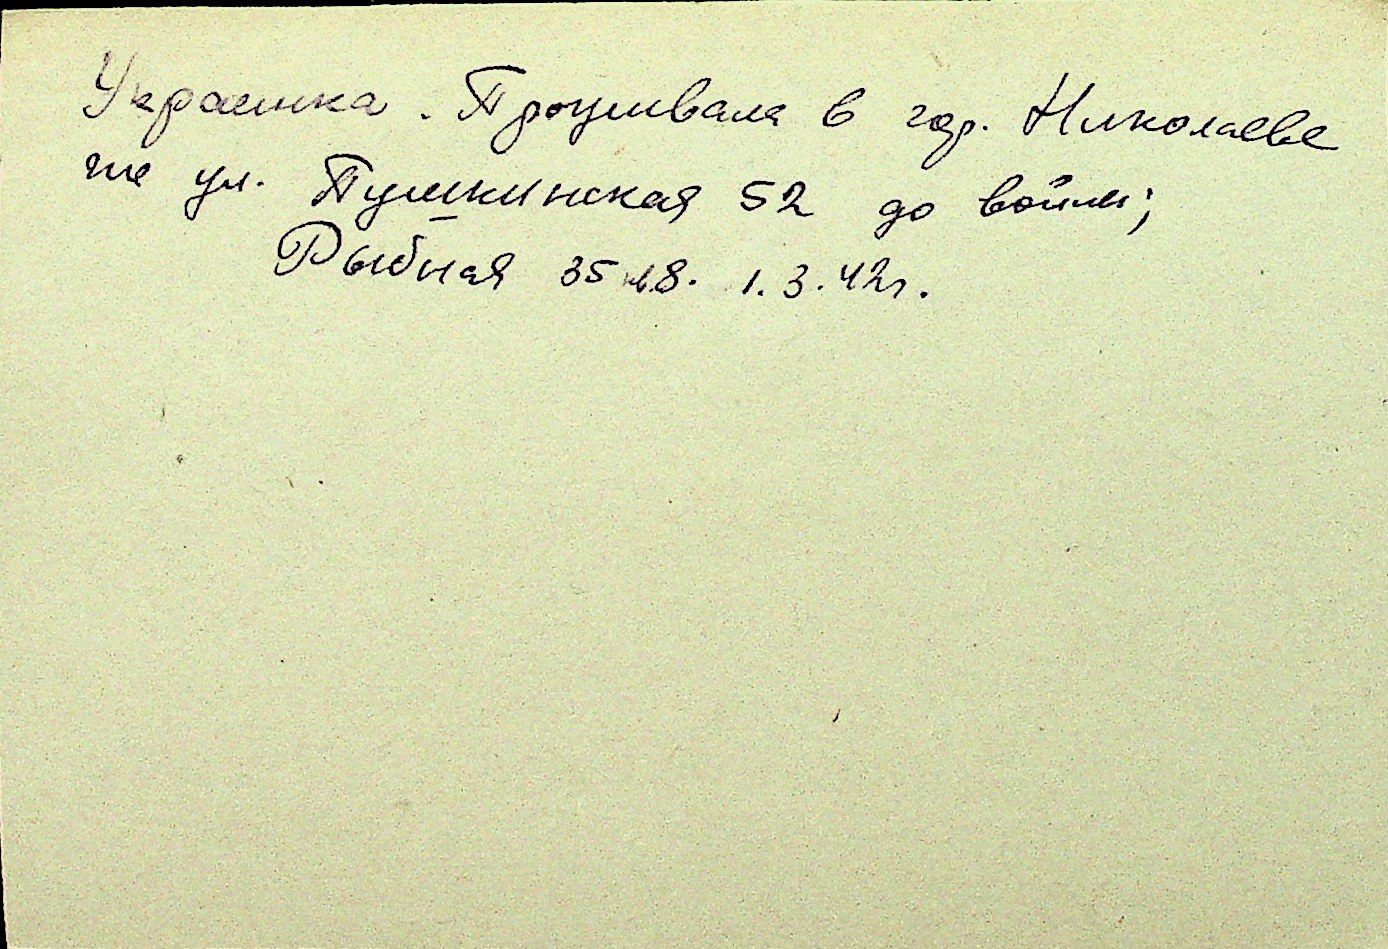 Украинка. Проживала в гор. Николаеве
по ул. Пушкинская 52 до войны;
Рыбная 35 кв. 8. 1.3.42г.